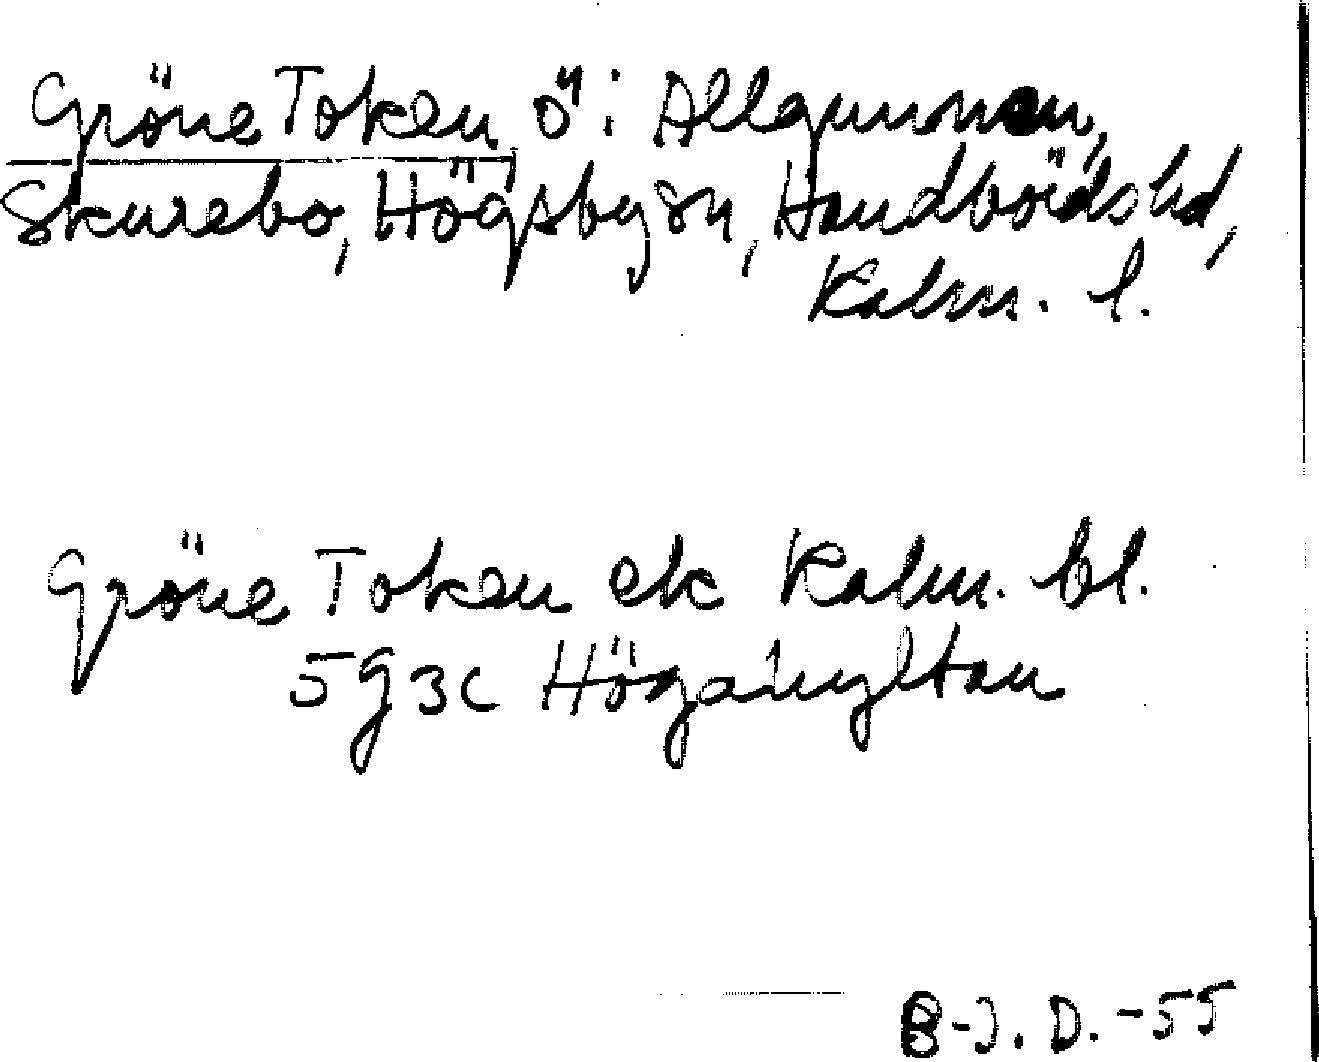 Gröne Token, ö i Allgunnen,
Skurebo, Högsby sn, Handbörds hd,
Kalm. l.
Gröne Token ek Kalm. bl.
5g3c Högahyltan
B-J. D. -55